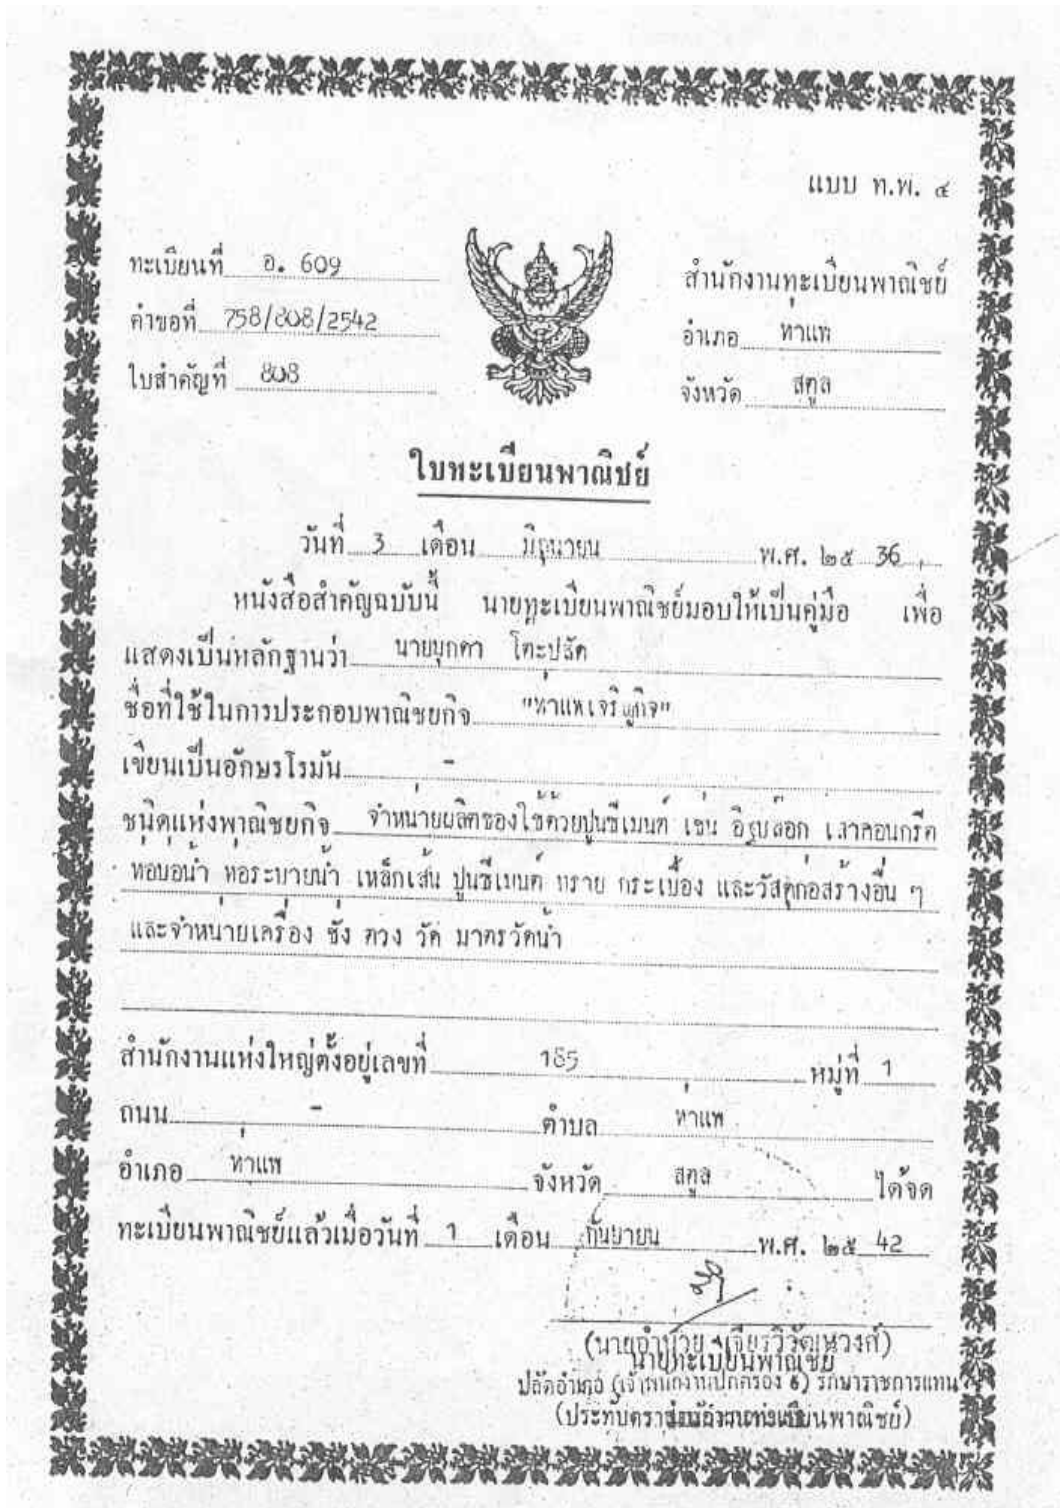 แบบ ท.พ. ๔
ทะเบียนที่ อ. 609
คำขอที่ 758/808/2542
ใบสำคัญที่ 808
สำนักงานทะเบียนพาณิชย์
อำเภอ ท่าแพ
จังหวัด สตูล
ใบทะเบียนพาณิชย์
วันที่ 3 เดือน มิถุนายน พ.ศ. ๒๕ 36
หนังสือสำคัญฉบับนี้ นายทะเบียนพาณิชย์มอบให้เป็นคู่มือ เพื่อ
แสดงเป็นหลักฐานว่า นายมุกตา โต๊ะปลัด
ชื่อที่ใช้ในการประกอบพาณิชยกิจ "ท่าแพเจริญกิจ"
เขียนเป็นอักษรโรมัน -
ชนิดแห่งพาณิชยกิจ จำหน่ายผลิตของใช้ด้วยปูนซีเมนต์ เช่น อิฐบล๊อก เสาคอนกรีต
ท่อบ่อน้ำ ท่อระบายน้ำ เหล็กเส้น ปูนซีเมนต์ ทราย กระเบื้อง และวัสดุก่อสร้างอื่น ๆ
และจำหน่ายเครื่อง ชั่ง ตวง วัด มาตรวัดน้ำ
สำนักงานแห่งใหญ่ตั้งอยู่เลขที่ 185 หมู่ที่ 1
ถนน - ตำบล ท่าแพ
อำเภอ ท่าแพ จังหวัด สตูล ได้จด
ทะเบียนพาณิชย์แล้วเมื่อวันที่ 1 เดือน กันยายน พ.ศ. ๒๕ 42
(นายอำนวย เจียรวิวัฒนวงศ์)
นายทะเบียนพาณิชย์
ปลัดอำเภอ (เจ้าพนักงานปกครอง 6) รักษาราชการแทน
(ประทับตราสำนักงานทะเบียนพาณิชย์)